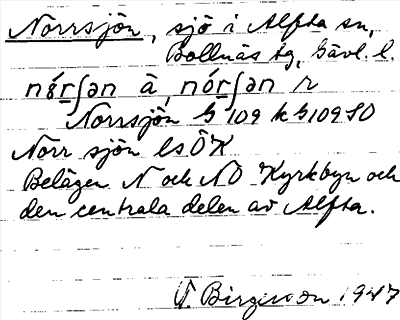 Norrsjön, sjö i Alfta sn,
Bollnäs tg, Gävl. l.
nórʃən r
Norrsjön G 109 k G109 SO
Norr sjön lsÖK
Belägen N och NO Kyrkbyn och
den centrala delen av Alfta.
Birgersson 1947